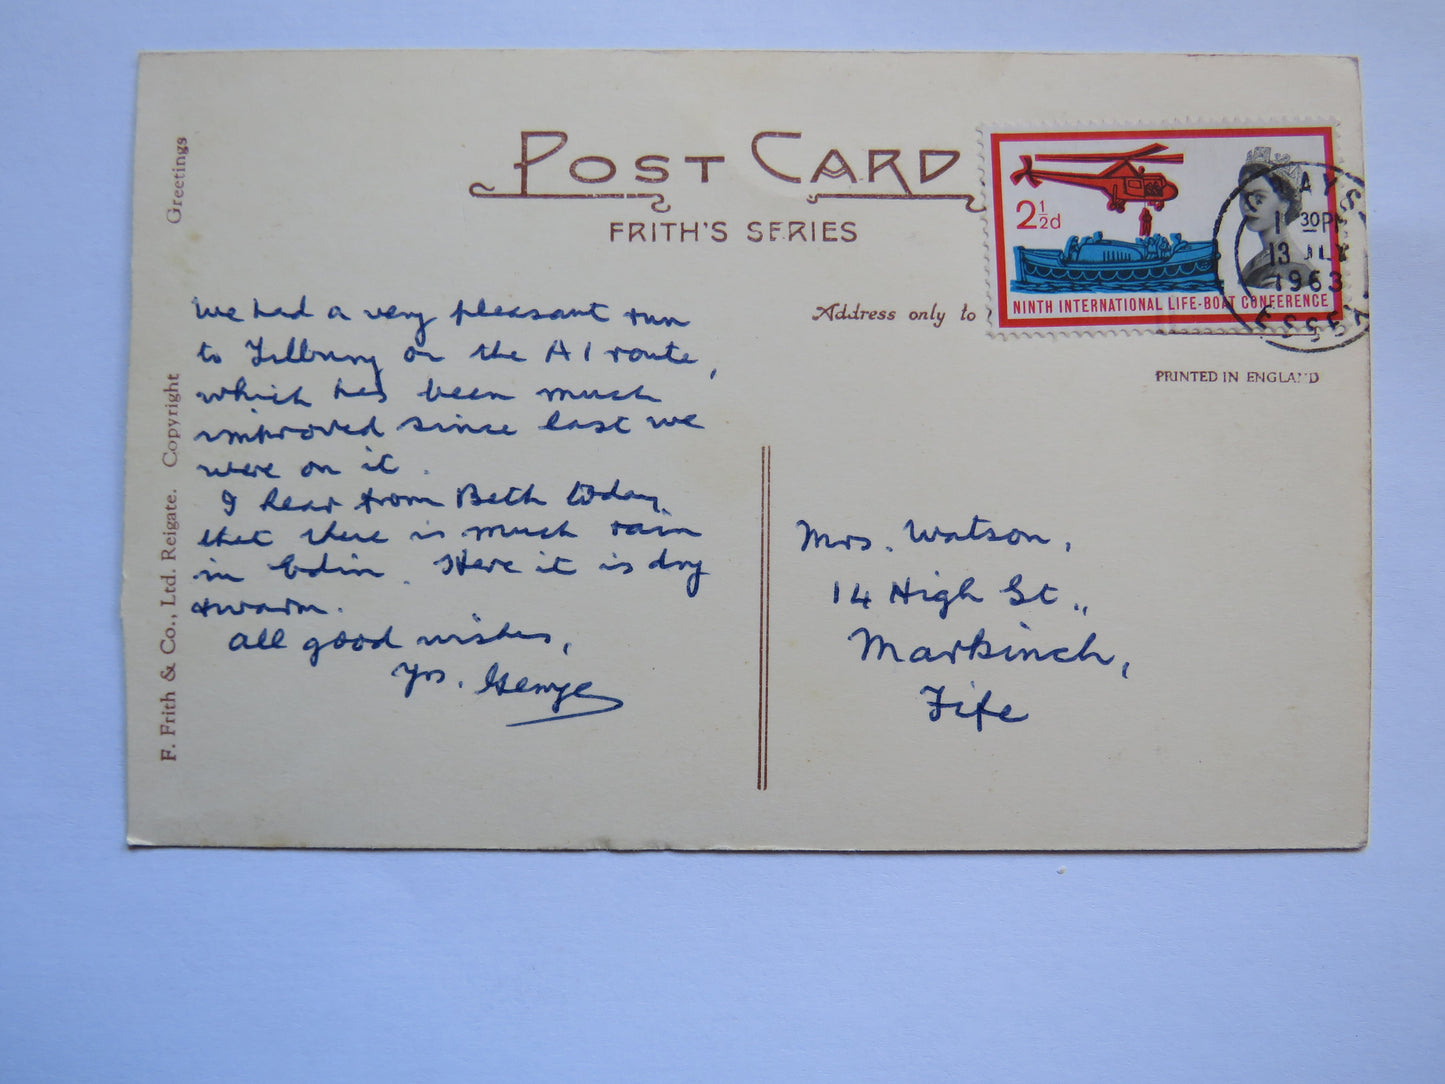 POST CARD
FRITH'S SERIES
Greetings
F. Frith & Co., Ltd. Reigate. Copyright
Address only to
PRINTED IN ENGLAND
2½d
NINTH INTERNATIONAL LIFE-BOAT CONFERENCE
GRAYS
1 30PM
13 JLY
1963
ESSEX
We had a very pleasant run
to Tilbury on the A1 route,
which has been much
improved since last we
were on it.
I hear from Beth today
that there is much rain
in Edin. Here it is dry
& warm.
All good wishes,
Yrs. George
Mrs. Watson,
14 High St.,
Markinch,
Fife